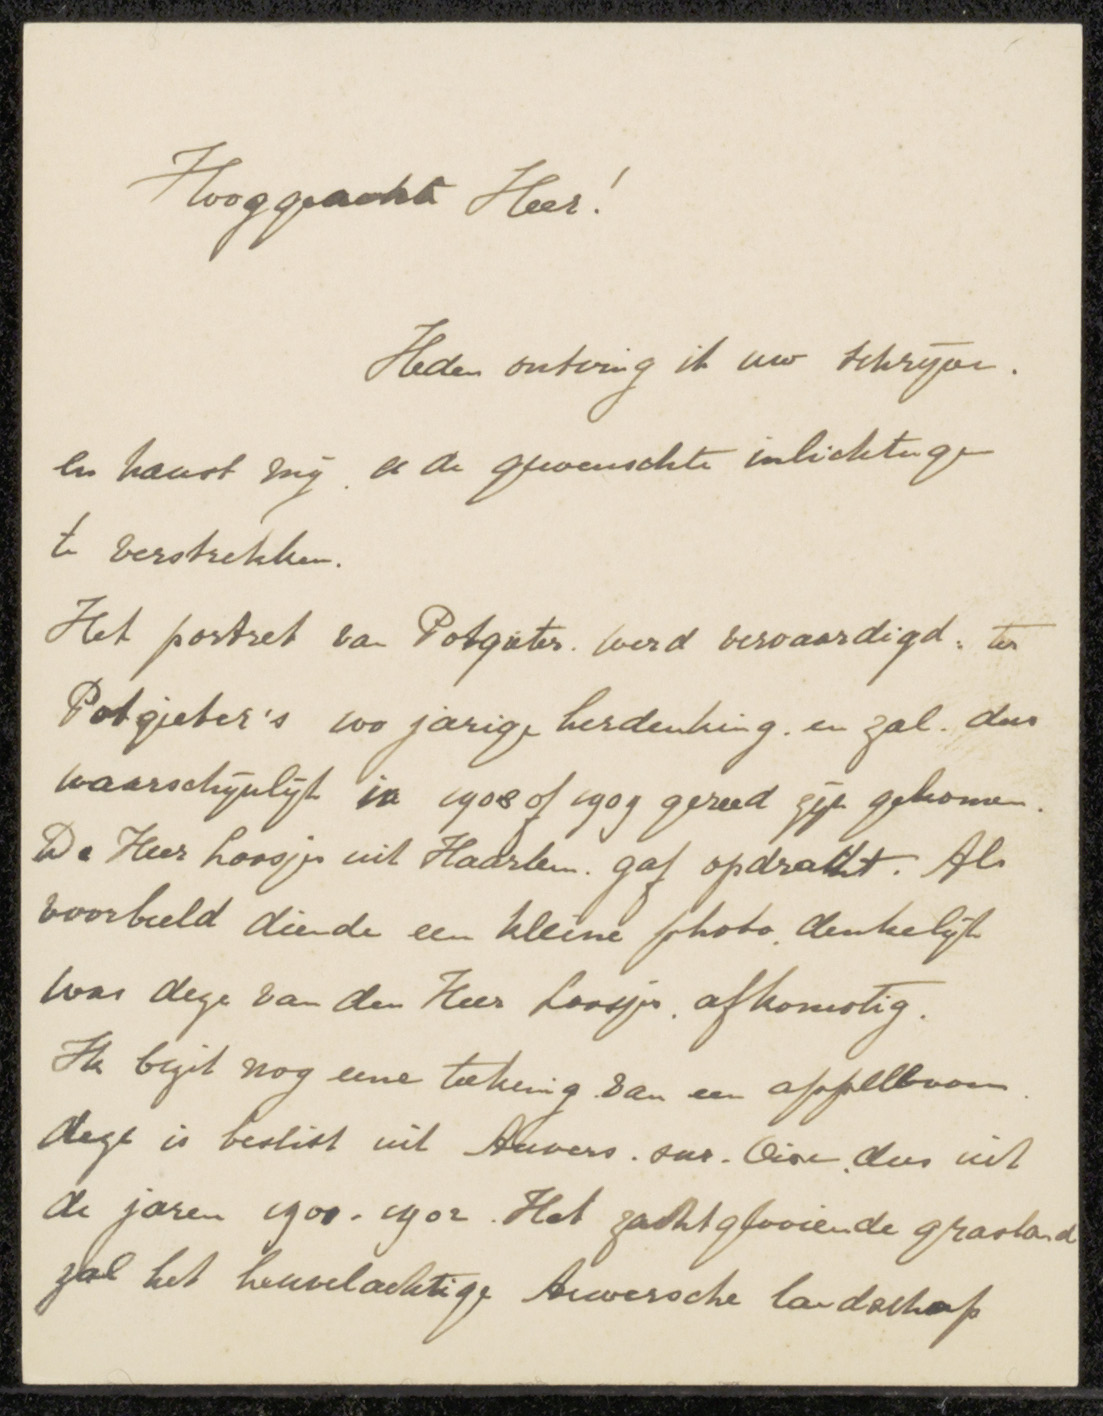 Hooggeacht Heer!
Heden ontving ik uw schrijven.
en haast mij de gewenschte inlichtingen
te verstrekken.
Het portret van Potgieter. werd vervaardigd. ter
Potgieter's 100 jarige herdenking. en zal. dus
waarschijnlijk in 1908 of 1909 gereed zijn gekomen.
De Heer Loosjes uit Haarlem. gaf opdracht. Als
voorbeeld diende een kleine photo. denkelijk
was deze van den Heer Loosjes. afkomstig.
Ik bezit nog eene tekening van een appelboom.
deze is beslist uit Auvers. sur. Oise. dus uit
de jaren 1900-1902. Het zachtglooiende grasland
zal het heuvelachtige Auversche landschap